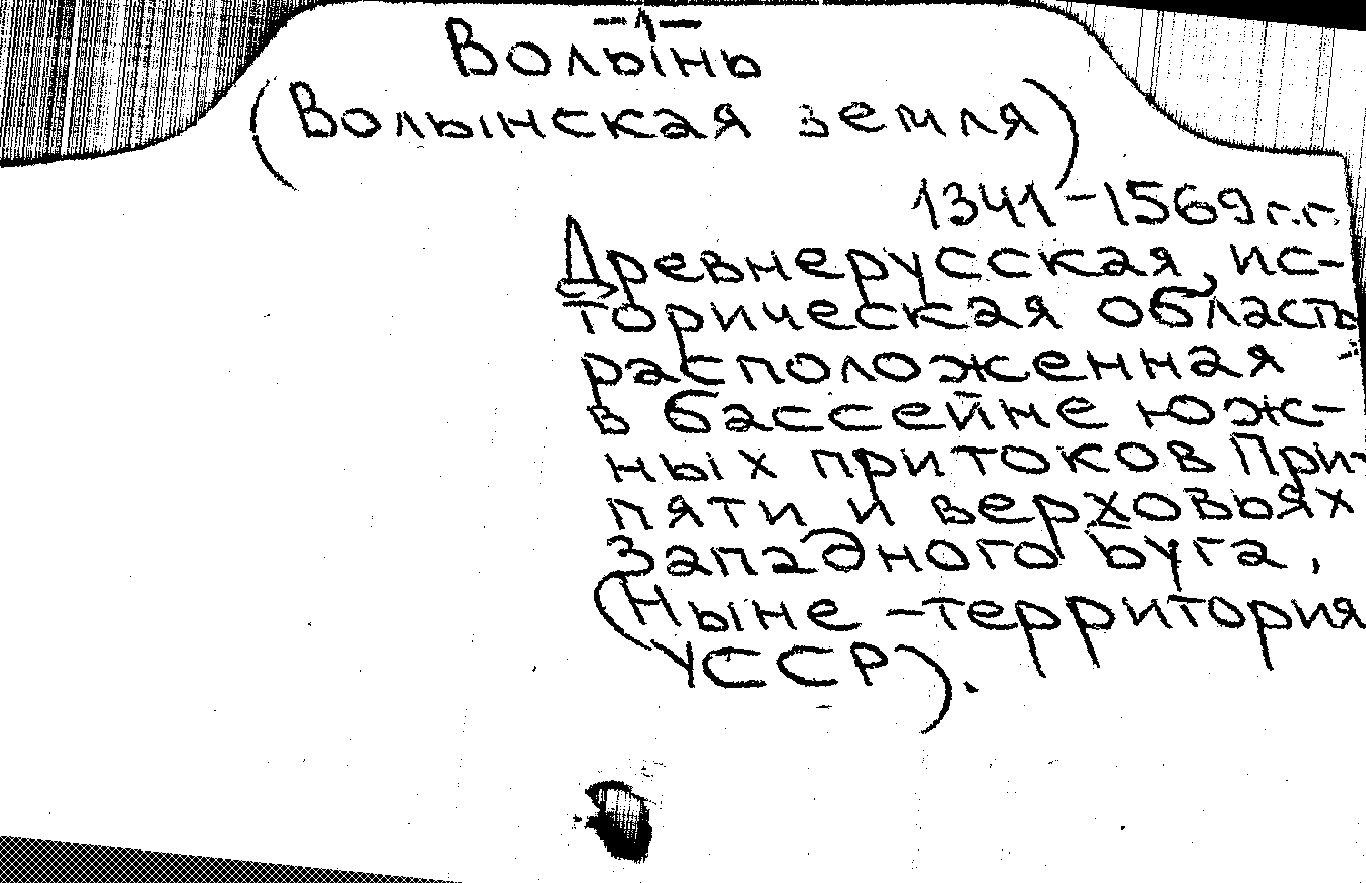 Волы́нь
(Волынская земля)
1341-1569г.г.
Древнерусская, ис-
торическая область
расположенная
в бассейне юж-
ных притоков При-
пяти и верховьях
Западного Буга,
(Ныне - территория
УССР).